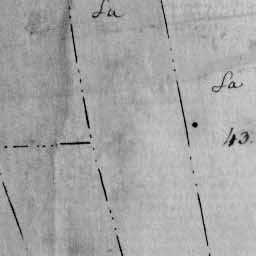 La
La
43.